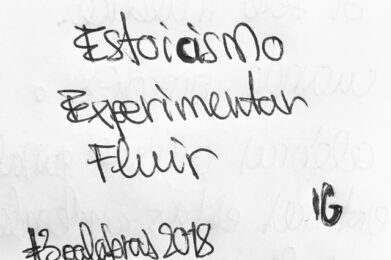 Estoicismo
Experimentar
Fluir
IG
#3palabras2018